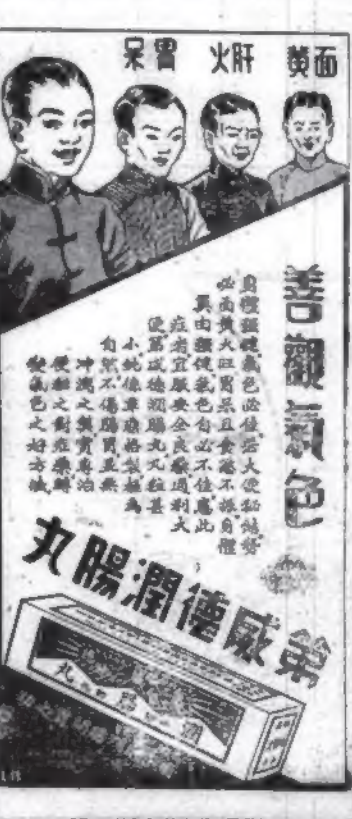 面黃
肝火
胃呆
善觀氣色
身體強健氣色必佳若大便秘結
必面黃火旺胃呆且食慾不振身體
強健氣色自必不佳此
症者宜服安全良藥通利大
便第威德潤腸丸丸粒甚
小純係草藥製極為
自然不傷腸胃且無
沖瀉之弊實專治
便秘之對症藥轉
變氣色之好方法
第威德潤腸丸